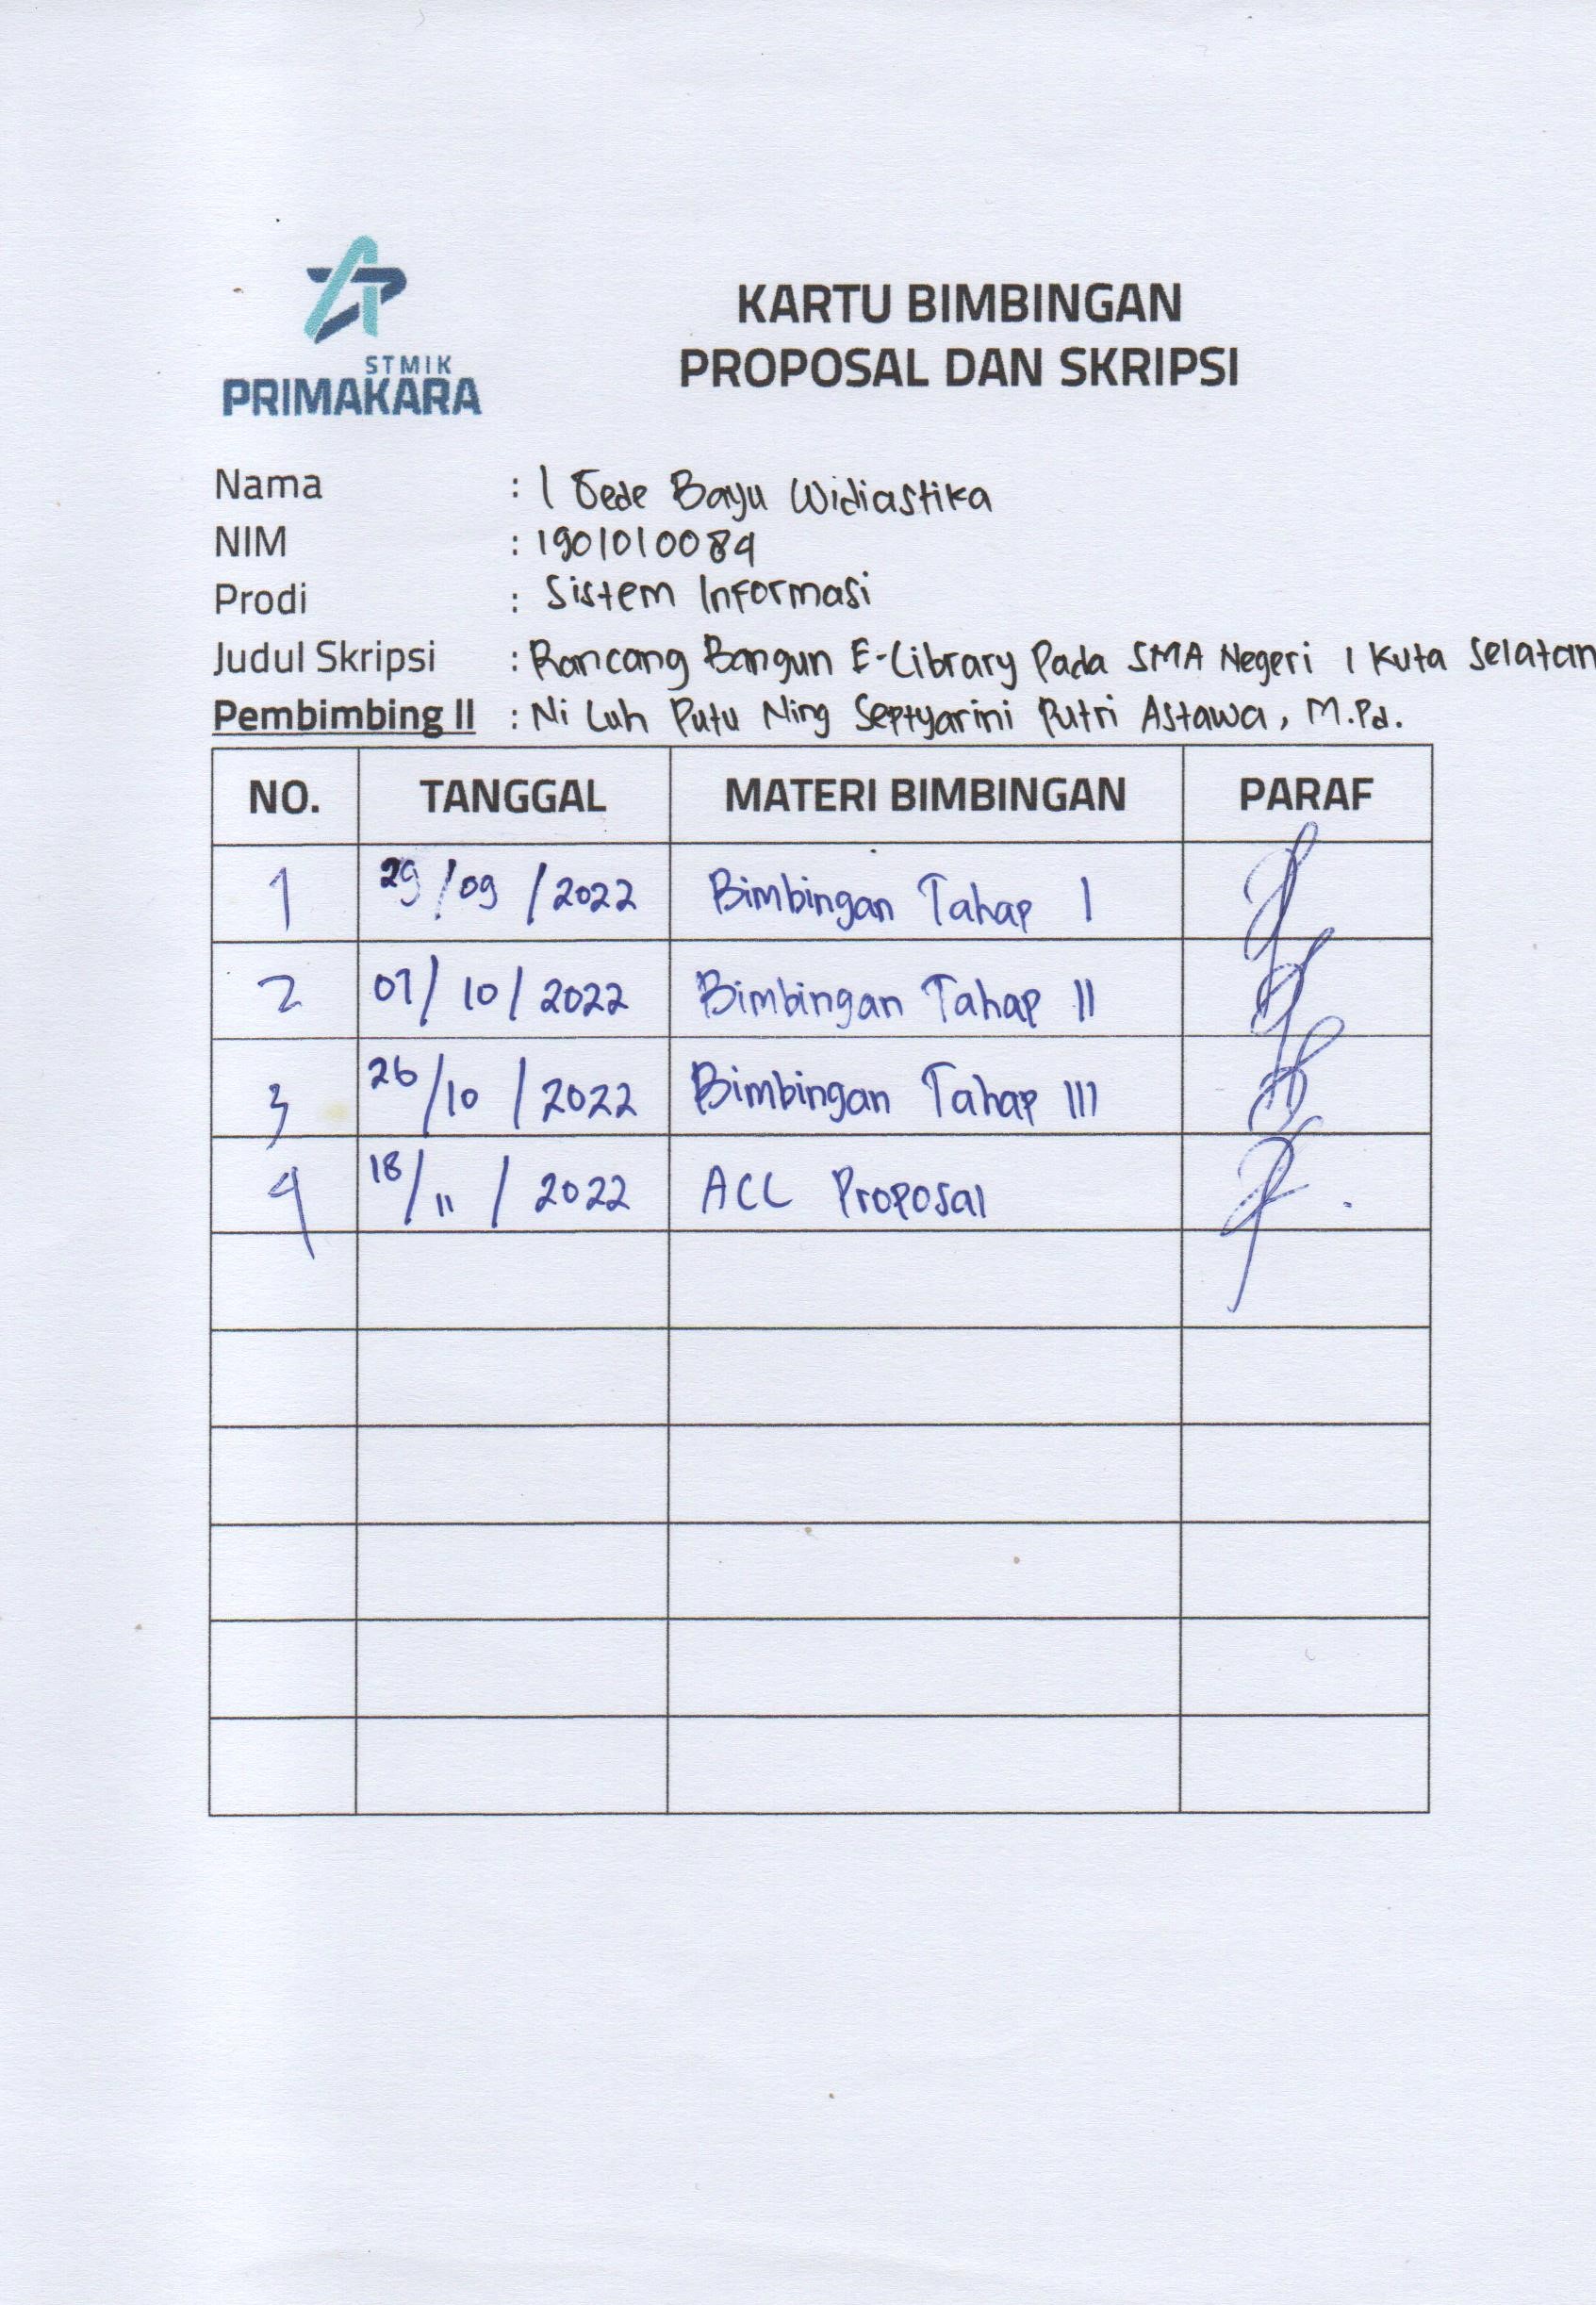 STMIK
PRIMAKARA
KARTU BIMBINGAN
PROPOSAL DAN SKRIPSI
Nama : I Gede Bayu Widiastika
NIM : 1901010084
Prodi : Sistem Informasi
Judul Skripsi : Rancang Bangun E-Library Pada SMA Negeri 1 Kuta Selatan
Pembimbing II : Ni Luh Putu Ning Septyarini Putri Astawa, M.Pd.
NO. TANGGAL MATERI BIMBINGAN PARAF
1 29/09/2022 Bimbingan Tahap I
2 07/10/2022 Bimbingan Tahap II
3 26/10/2022 Bimbingan Tahap III
4 18/11/2022 ACC Proposal